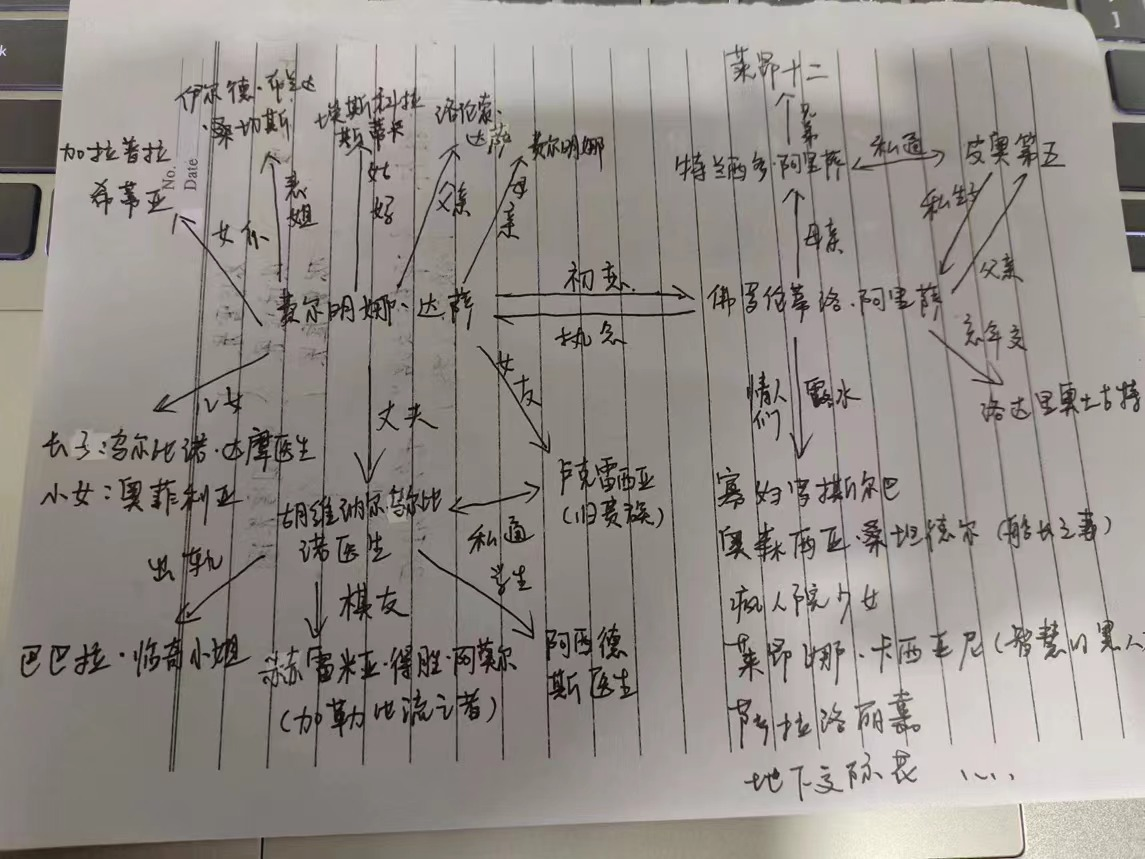 莱昂十二
兄弟
伊尔德·布兰达
·桑切斯
埃斯科拉
斯蒂卡
洛伦索·
达萨
费尔明娜
加拉普拉
希蒂亚
No.
Date
特兰西多·阿里萨
私通
皮奥第五
表姐
女仆
父亲
母亲
母亲
私生子
父亲
费尔明娜·达萨
初恋
执念
佛罗伦蒂洛·阿里萨
忘年交
洛达里奥土古特
儿女
丈夫
女友
情人们
露水
长子:乌尔比诺·达摩医生
小女:奥菲利亚
胡维纳尔·乌尔比
诺医生
私通
卢克雷西亚
(旧贵族)
寡妇拿撒斯尔巴
奥森西亚·桑坦德尔(船长之妻)
疯人院少女
莱昂娜·卡西亚尼(智慧的黑人
萨拉洛丽嘉
地下交际花 ……
出轨
棋友
学生
巴巴拉·临奇小姐
赫雷米亚·得胜·阿莫尔
(加勒比流亡者)
阿西德
斯医生